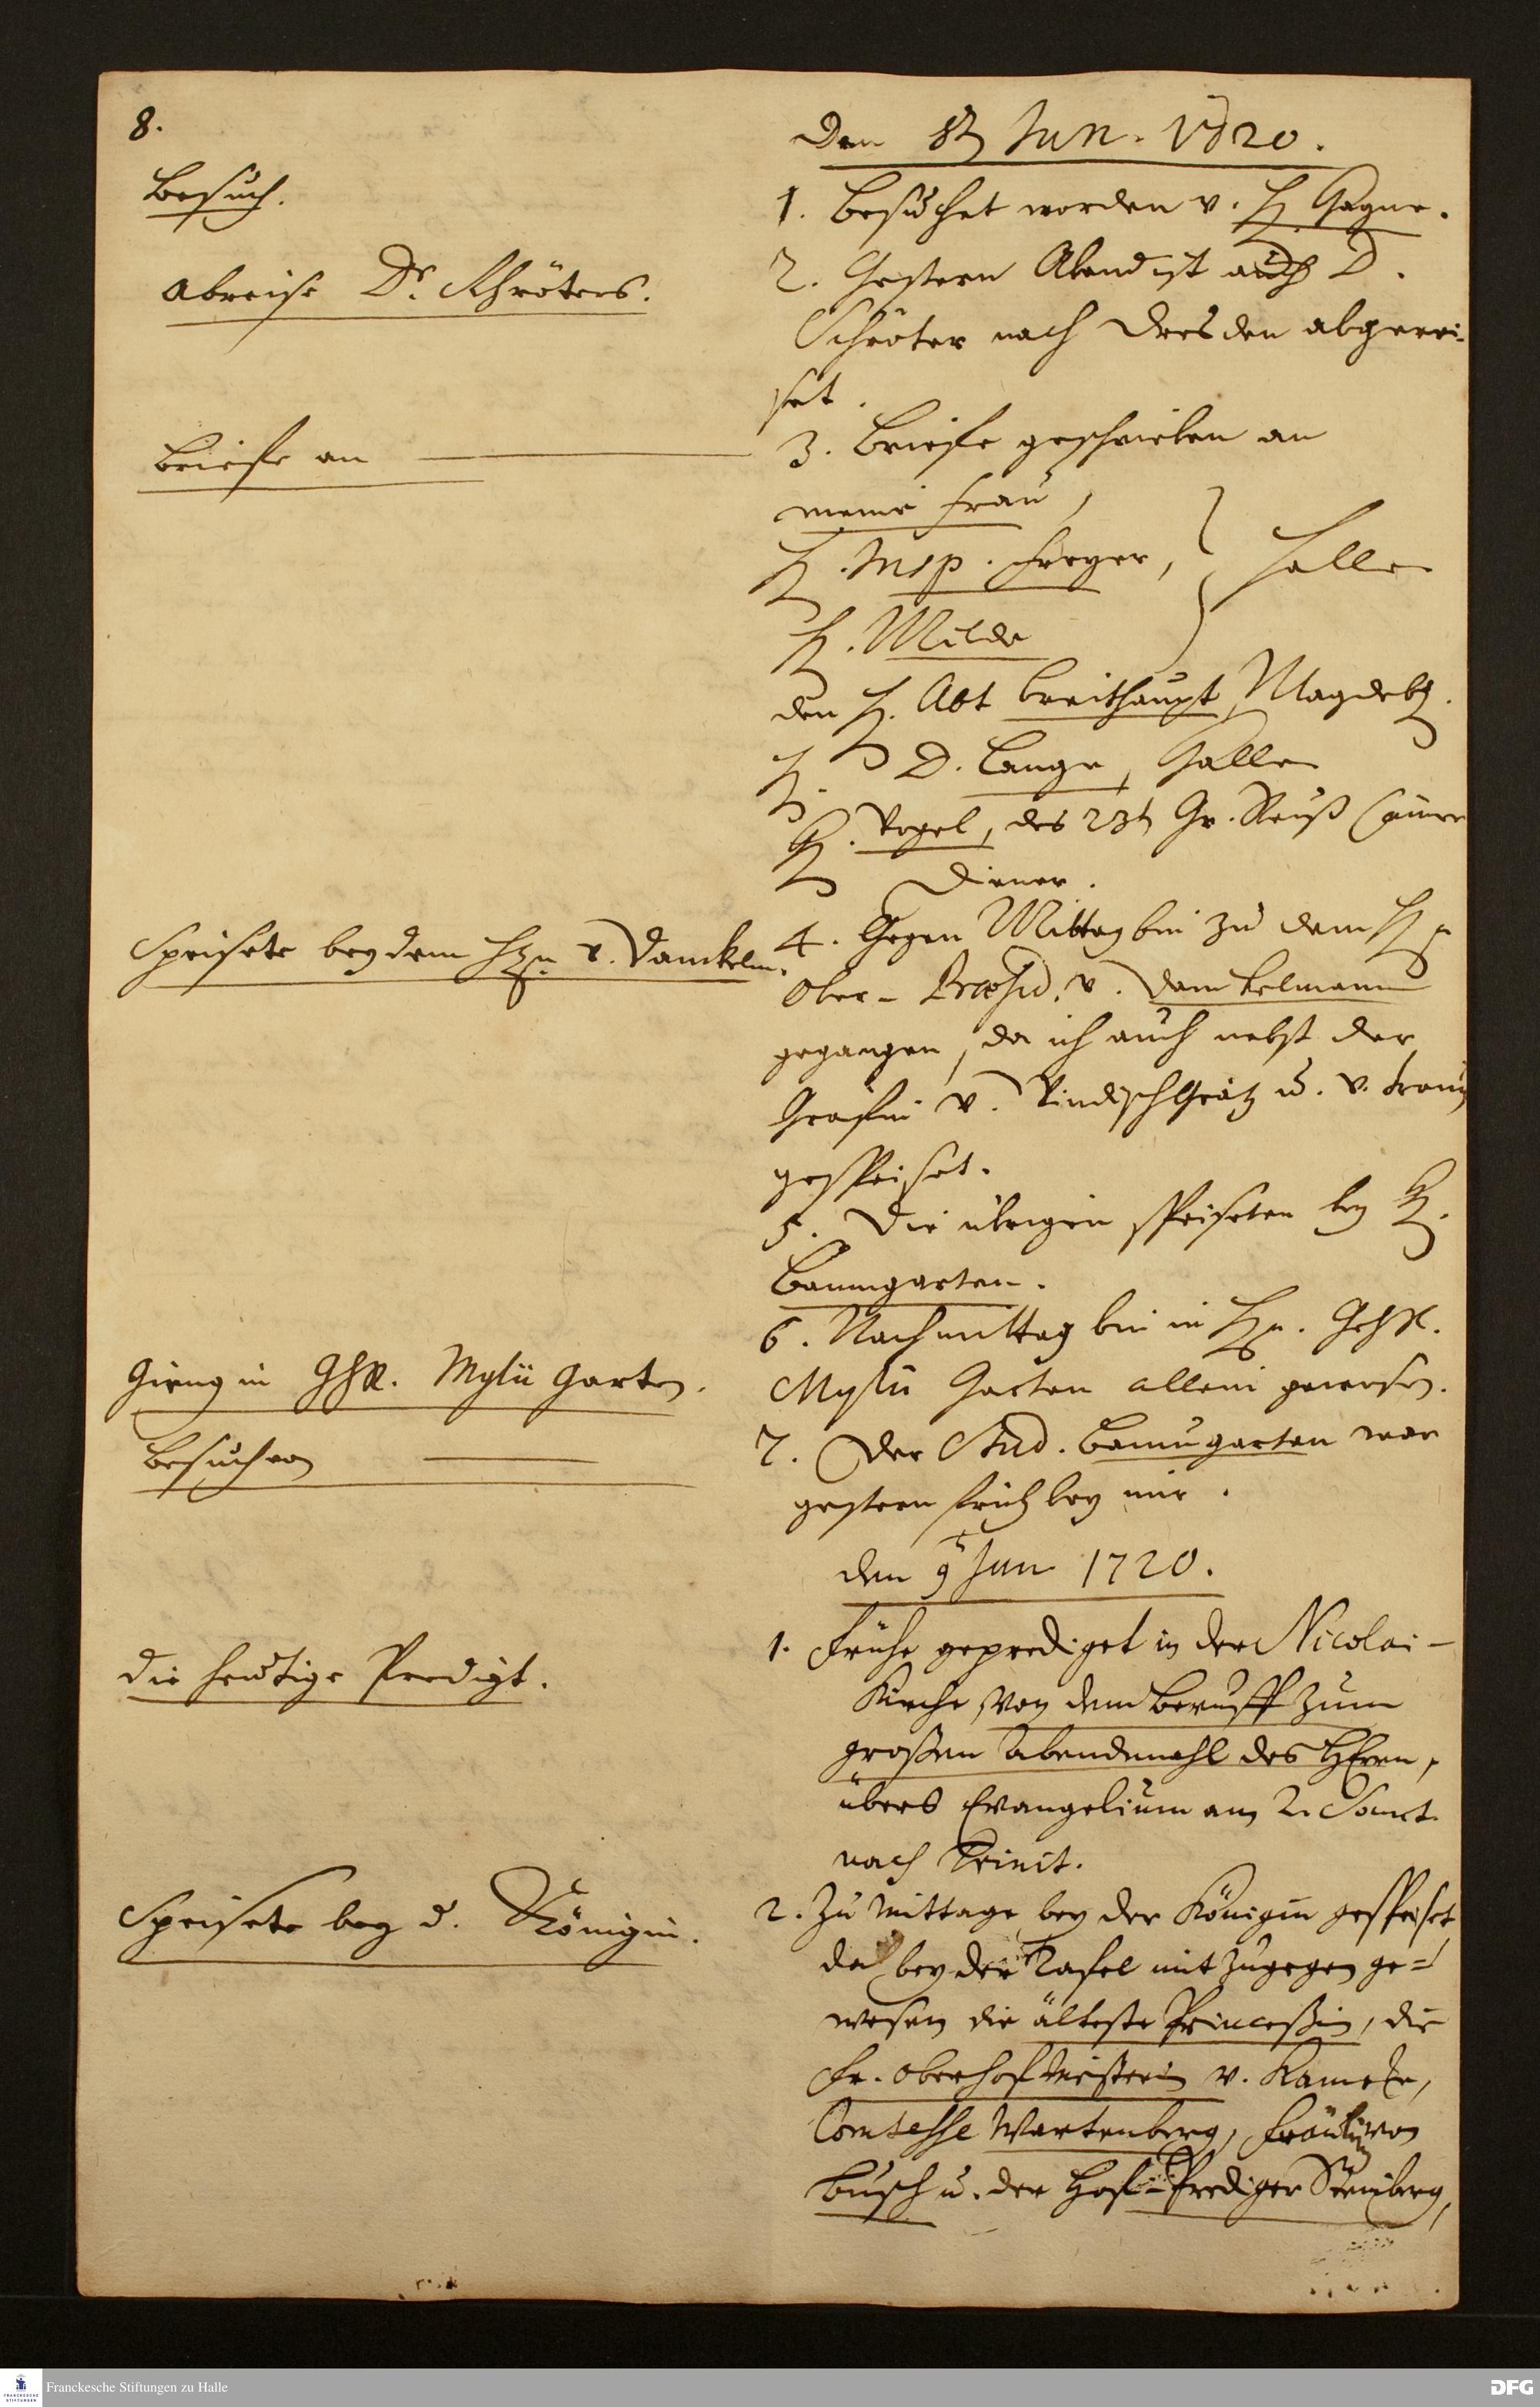 8.
Den 8t Jun. 1720.
Besuch.
1. Besuchet worden v. H. Gagne.
Abreise Dr. Schröters.
2. Gestern Abend ist auch D.
Schröter nach Dresden abgerei-
set.
Briefe an
3. Briefe geschrieben an
meine Frau,
H. Insp. Freyer, Halle
H. Milde
den H. Abt Breithaupt, Magdeb.
H. D. Lange, Halle
H. Vogel, des 23t Gr. Reuß
Diener.
Speisete bey dem Hrn v. Danckelm.
4. Gegen Mittag bin zu dem H
Ober-Præsid. v. Danckelmann
gegangen, da ich auch nebst der
Gräfin v. Windischgrätz u. v.
gespeiset.
5. Die übrigen speiseten bey H.
Baumgarten.
Gieng in GhR. Mylii Garten.
6. Nachmittag bin in Hrn. GehR.
Mylii Garten allein gewesen.
Besuch von
7. Der Stud. Baumgarten war
gestern früh bey mir.
den 9t Jun 1720.
Die heutige Predigt.
1. Frühe geprediget in der Nicolai-
Kirche von dem Beruff zum
großen Abendmahl des HErrn,
übers Evangelium am 2. Sont.
nach Trinit.
Speisete bey d. Königin.
2. Zu Mittage bey der Königin gespeiset,
da bey der Tafel mit zugegen ge-
wesen die älteste Princeßin, die
Fr. Oberhofmeisterin v. Kameke,
Comtesse Wartenberg, Fräulein von
Busch u. der Hof-Prediger Steinberg,
Franckesche Stiftungen zu Halle
DFG